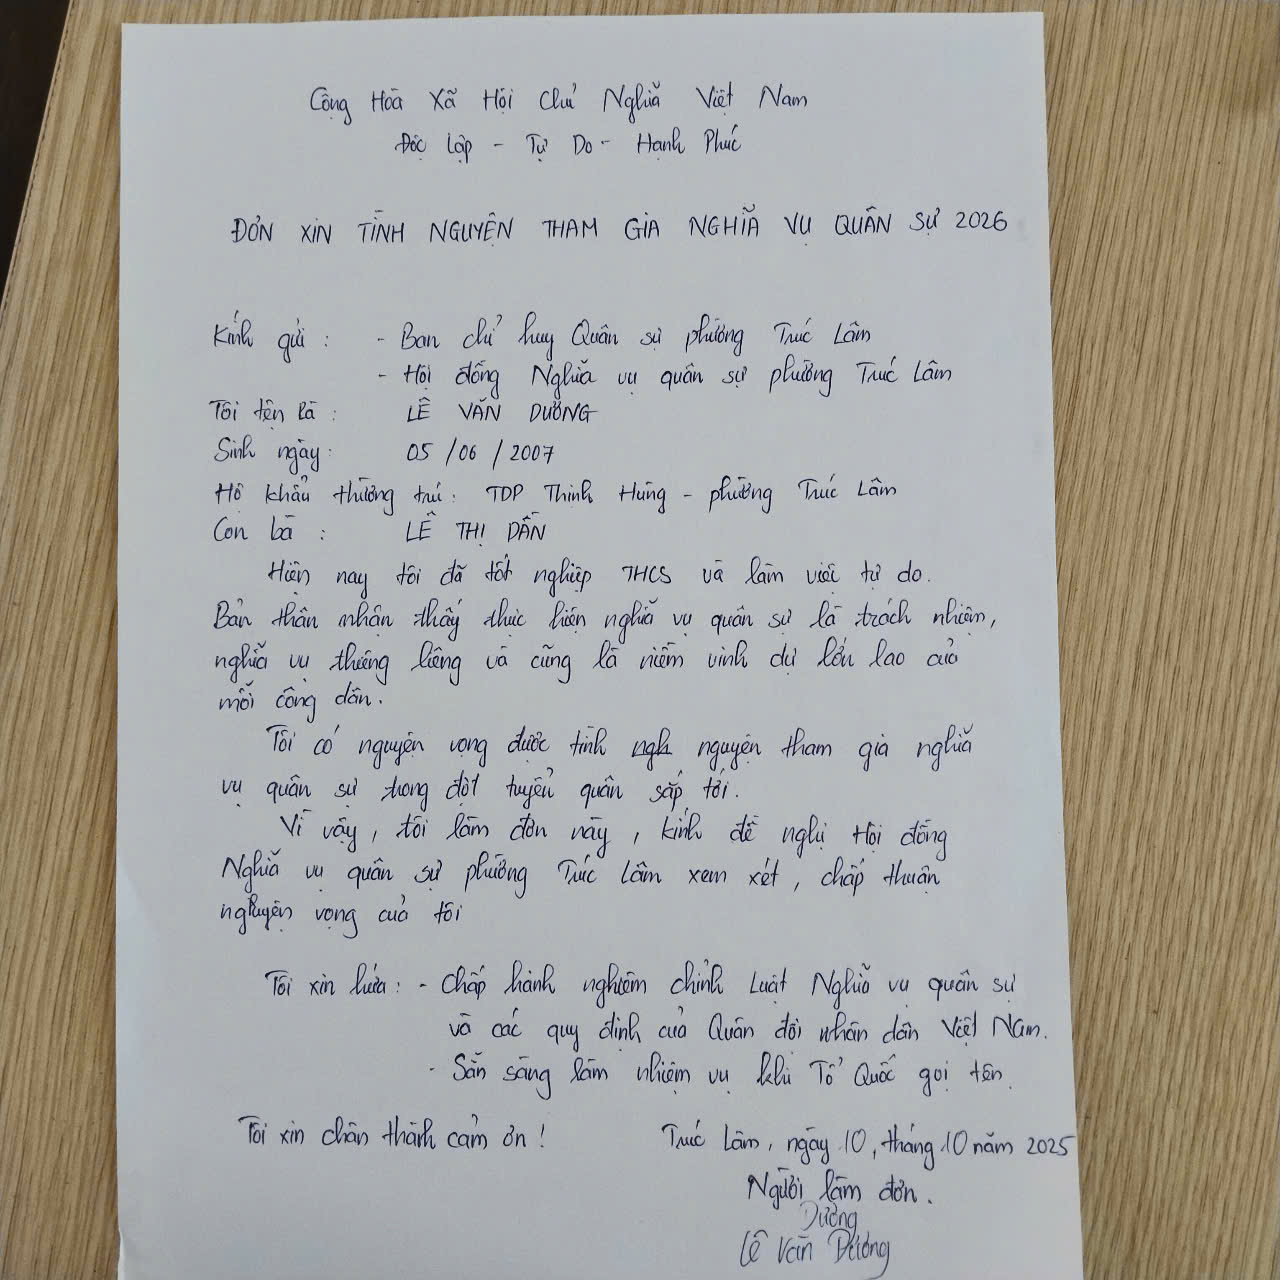 Cộng Hòa Xã Hội Chủ Nghĩa Việt Nam
Độc Lập - Tự Do - Hạnh Phúc
ĐƠN XIN TÌNH NGUYỆN THAM GIA NGHĨA VỤ QUÂN SỰ 2026
Kính gửi : - Ban chỉ huy Quân sự phường Trúc Lâm
- Hội đồng Nghĩa vụ quân sự phường Trúc Lâm
Tôi tên là : LÊ VĂN DƯƠNG
Sinh ngày: 05/06/2007
Hộ khẩu thường trú : TDP Thịnh Hùng - phường Trúc Lâm
Con bà : LÊ THỊ DẦN
Hiện nay tôi đã tốt nghiệp THCS và làm việc tự do.
Bản thân nhận thấy thực hiện nghĩa vụ quân sự là trách nhiệm,
nghĩa vụ thiêng liêng và cũng là niềm vinh dự lớn lao của
mỗi công dân.
Tôi có nguyện vọng được tình ngh nguyện tham gia nghĩa
vụ quân sự trong đợt tuyển quân sắp tới.
Vì vậy, tôi làm đơn này, kính đề nghị Hội đồng
Nghĩa vụ quân sự phường Trúc Lâm xem xét, chấp thuận
nguyện vọng của tôi
Tôi xin hứa : - Chấp hành nghiêm chỉnh Luật Nghĩa vụ quân sự
và các quy định của Quân đội nhân dân Việt Nam.
- Sẵn sàng làm nhiệm vụ khi Tổ Quốc gọi tên.
Tôi xin chân thành cảm ơn !
Trúc Lâm, ngày 10, tháng 10 năm 2025
Người làm đơn.
Dương
Lê Văn Dương